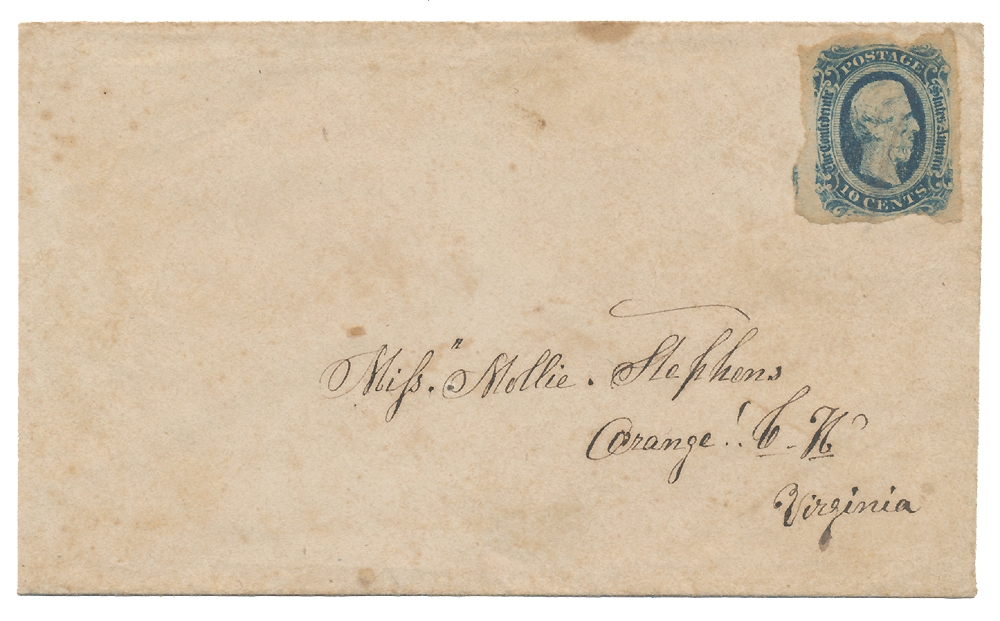 POSTAGE
The Confederate
States America
10 CENTS
Miss. "Mollie. Stephens
Orange! C. H
Virginia